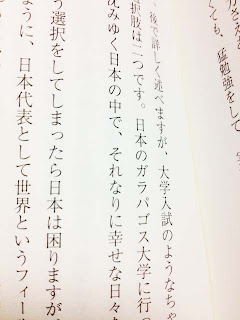 力さえ
くても、猛勉強をして
後で詳しく述べますが、大学入試のようなちゃ
択肢は二つです。日本のガラパゴス大学に行っ
沈みゆく日本の中で、それなりに幸せな日々を
う選択をしてしまったら日本は困りますが、
ように、日本代表として世界というフィー